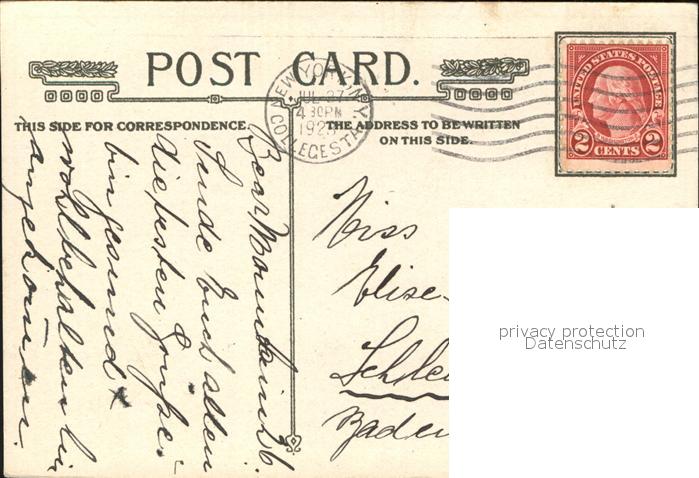 POST CARD.
NEW YORK, N.Y.
JUL 27
4 30PM
192
COLLEGE STA.
UNITED STATES POSTAGE
2 CENTS 2
THIS SIDE FOR CORRESPONDENCE.
THE ADDRESS TO BE WRITTEN
ON THIS SIDE.
Bear Mountain 26.
Sende Euch allen
die besten Grüße.
bin gesund &
wohlbehalten hier
angekommen.
Miss
Elise
Schle
Baden
privacy protection
Datenschutz